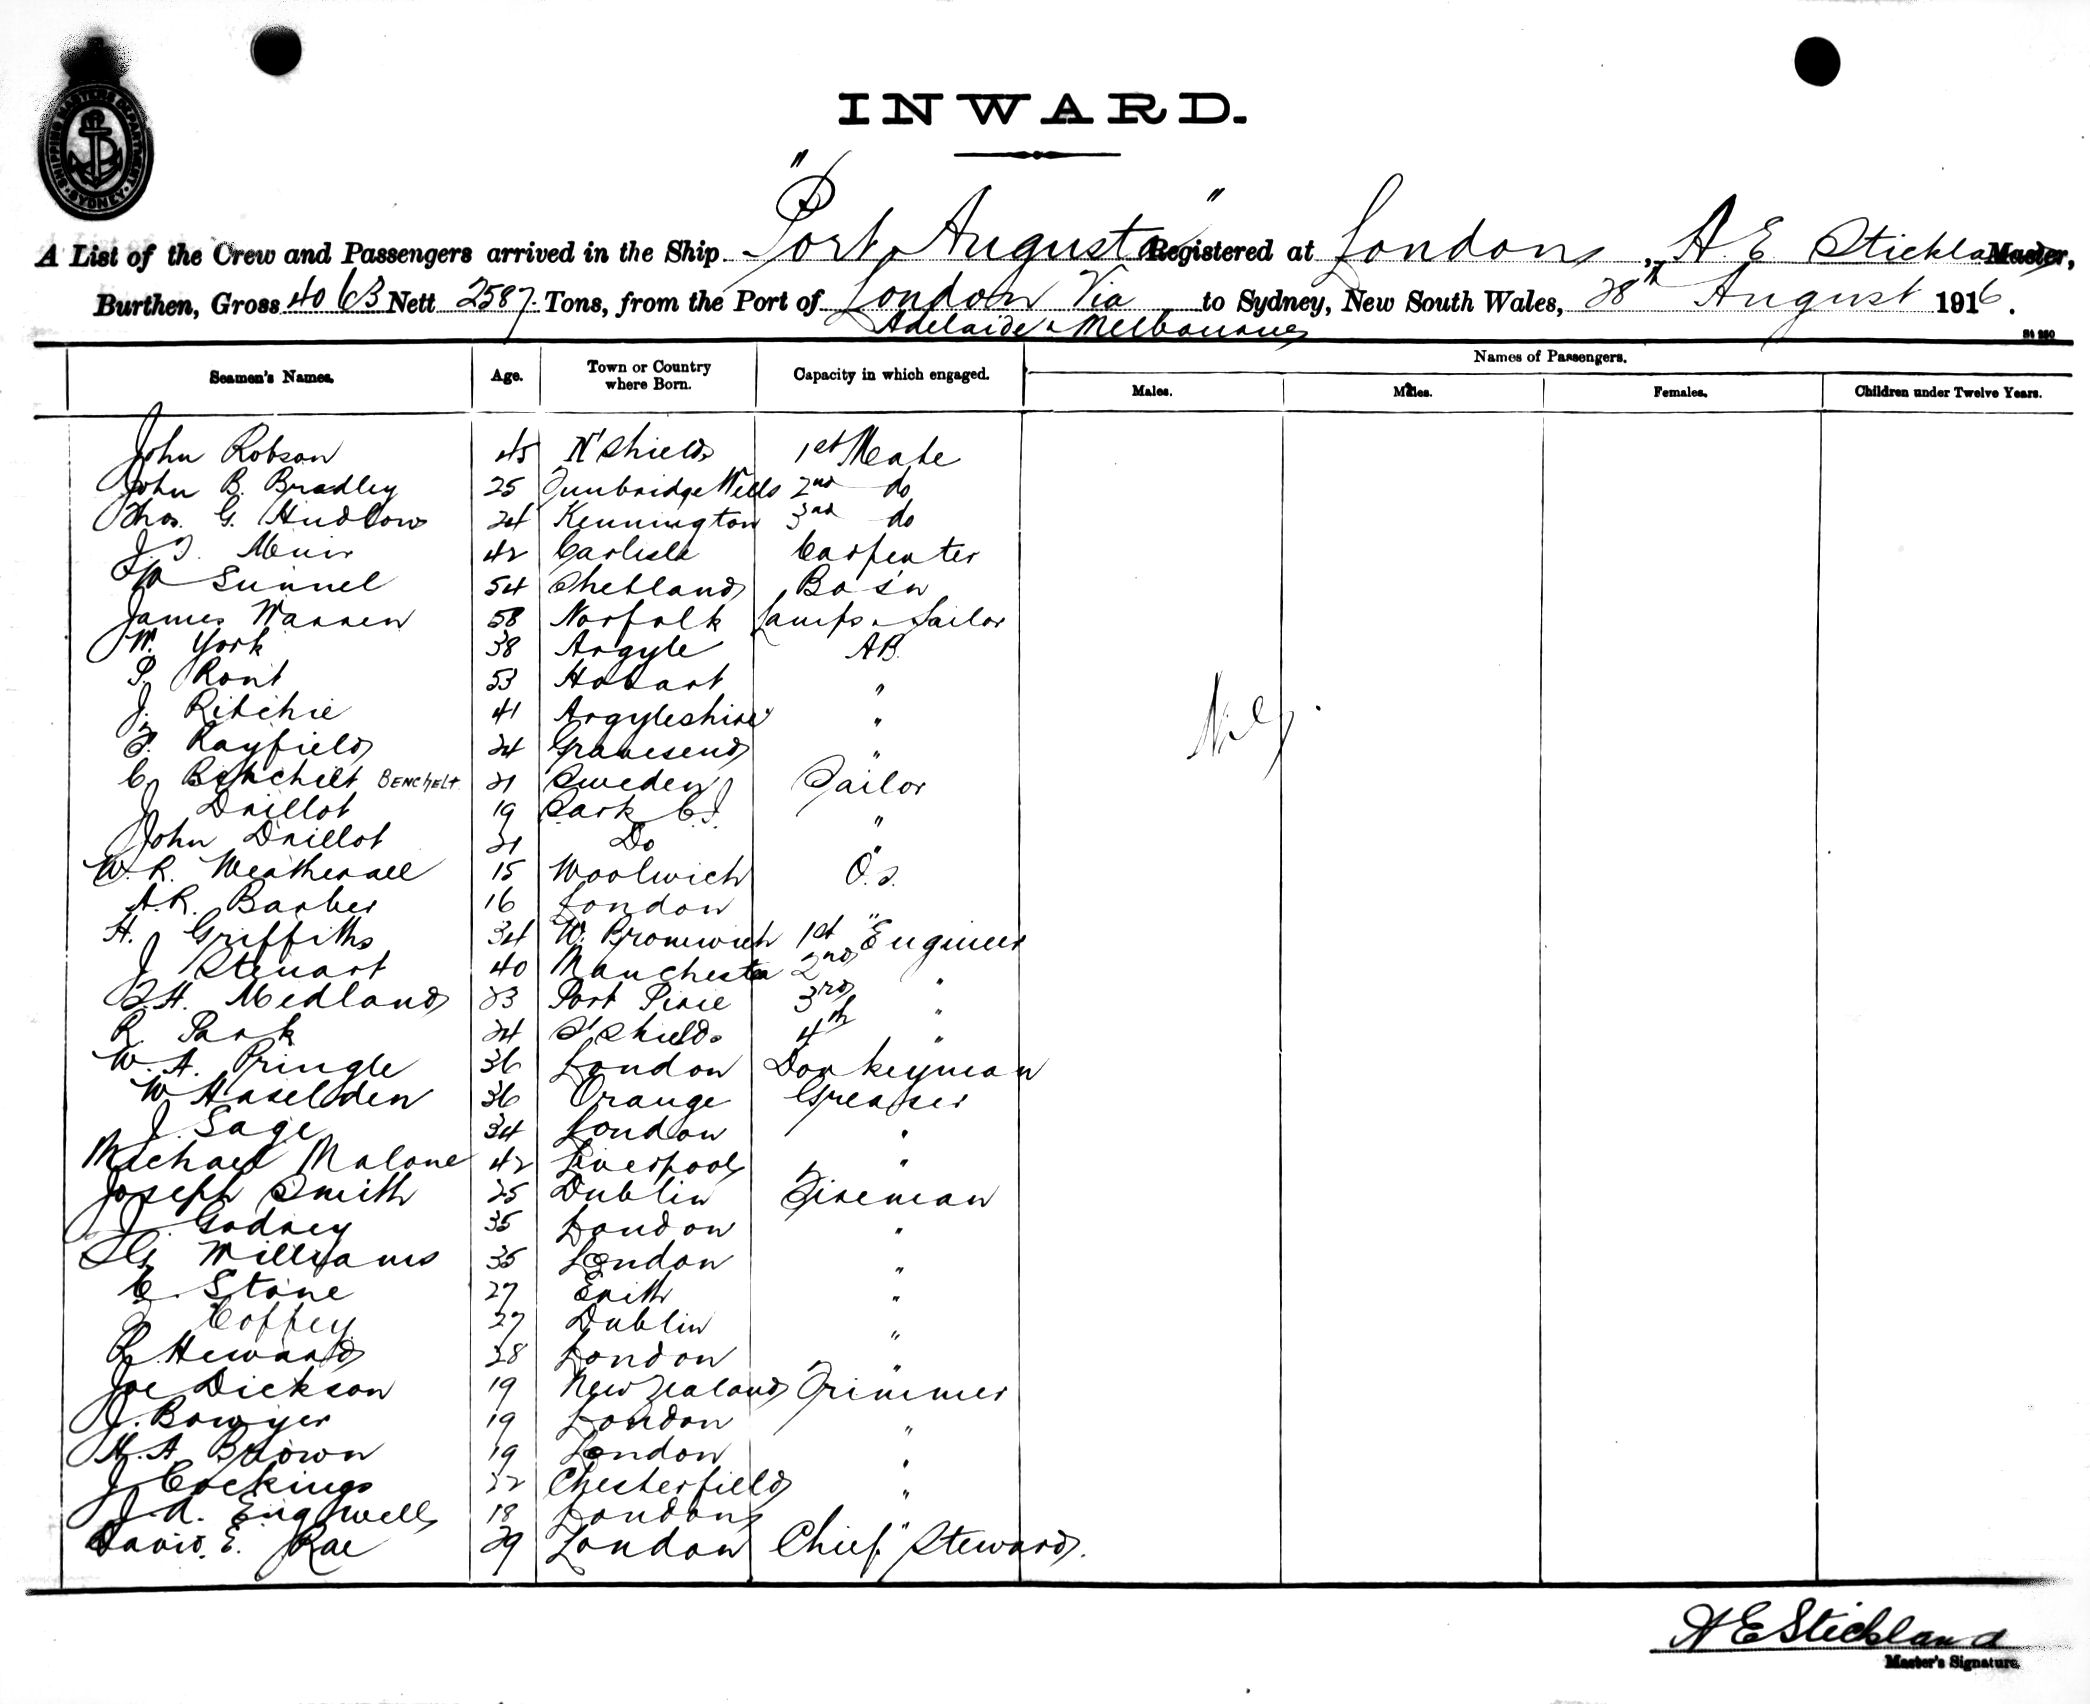 SHIPPING MASTERS DEPARTMENT SYDNEY
INWARD.
A List of the Crew and Passengers arrived in the Ship "Port Augusta" Registered at London, A E Stickland Master,
Burthen, Gross 4063 Nett 2587 Tons, from the Port of London Via to Sydney, New South Wales, 28th August 1916.
Adelaide & Melbourne
Seamen's Names. Age. Town or Country where Born. Capacity in which engaged. Names of Passengers.
Males. Males. Females. Children under Twelve Years.
John Robson 45 N Shields 1st Mate
John B. Bradley 25 Tunbridge Wells 2nd do
Thos. G. Hudlow 24 Kennington 3rd do
J. Muir 42 Carlisle Carpenter
W Sunnel 54 Shetland Bo's'n
James Warren 58 Norfolk Lamps & Sailor
W. York 38 Argyle AB.
P. Ront 53 Hobart "
J. Ritchie 41 Argyleshire "
Rayfield 24 Gravesend "
C. BENCHELT 21 Sweden Sailor
J Drillot 19 Sark C.I. "
John Drillot 21 Do "
W. R. Weatherall 15 Woolwich O.S.
A. R. Barber 16 London "
H. Griffiths 34 W. Bromwich 1st Engineer
J Stewart 40 Manchester 2nd "
H. Medland 23 Port Pirie 3rd "
R Park 24 S Shields 4th "
W. A. Pringle 36 London Donkeyman
W Haselden 36 Orange Greaser
J. Sage 34 London "
Michael Malone 42 Liverpool "
Joseph Smith 25 Dublin Fireman
J. Godney 35 London "
G Williams 35 London "
C. Stone 27 Erith "
Coffey 27 Dublin "
R Heward 28 London "
Joe Dickson 19 New Zealand Trimmer
J. Bowyer 19 London "
H. A. Brown 19 London "
J Cockings 22 Chesterfield "
J. A. Englwell 18 London "
David. E. Rae 29 London Chief Steward.
Nil.
A E Stickland
Master's Signature.